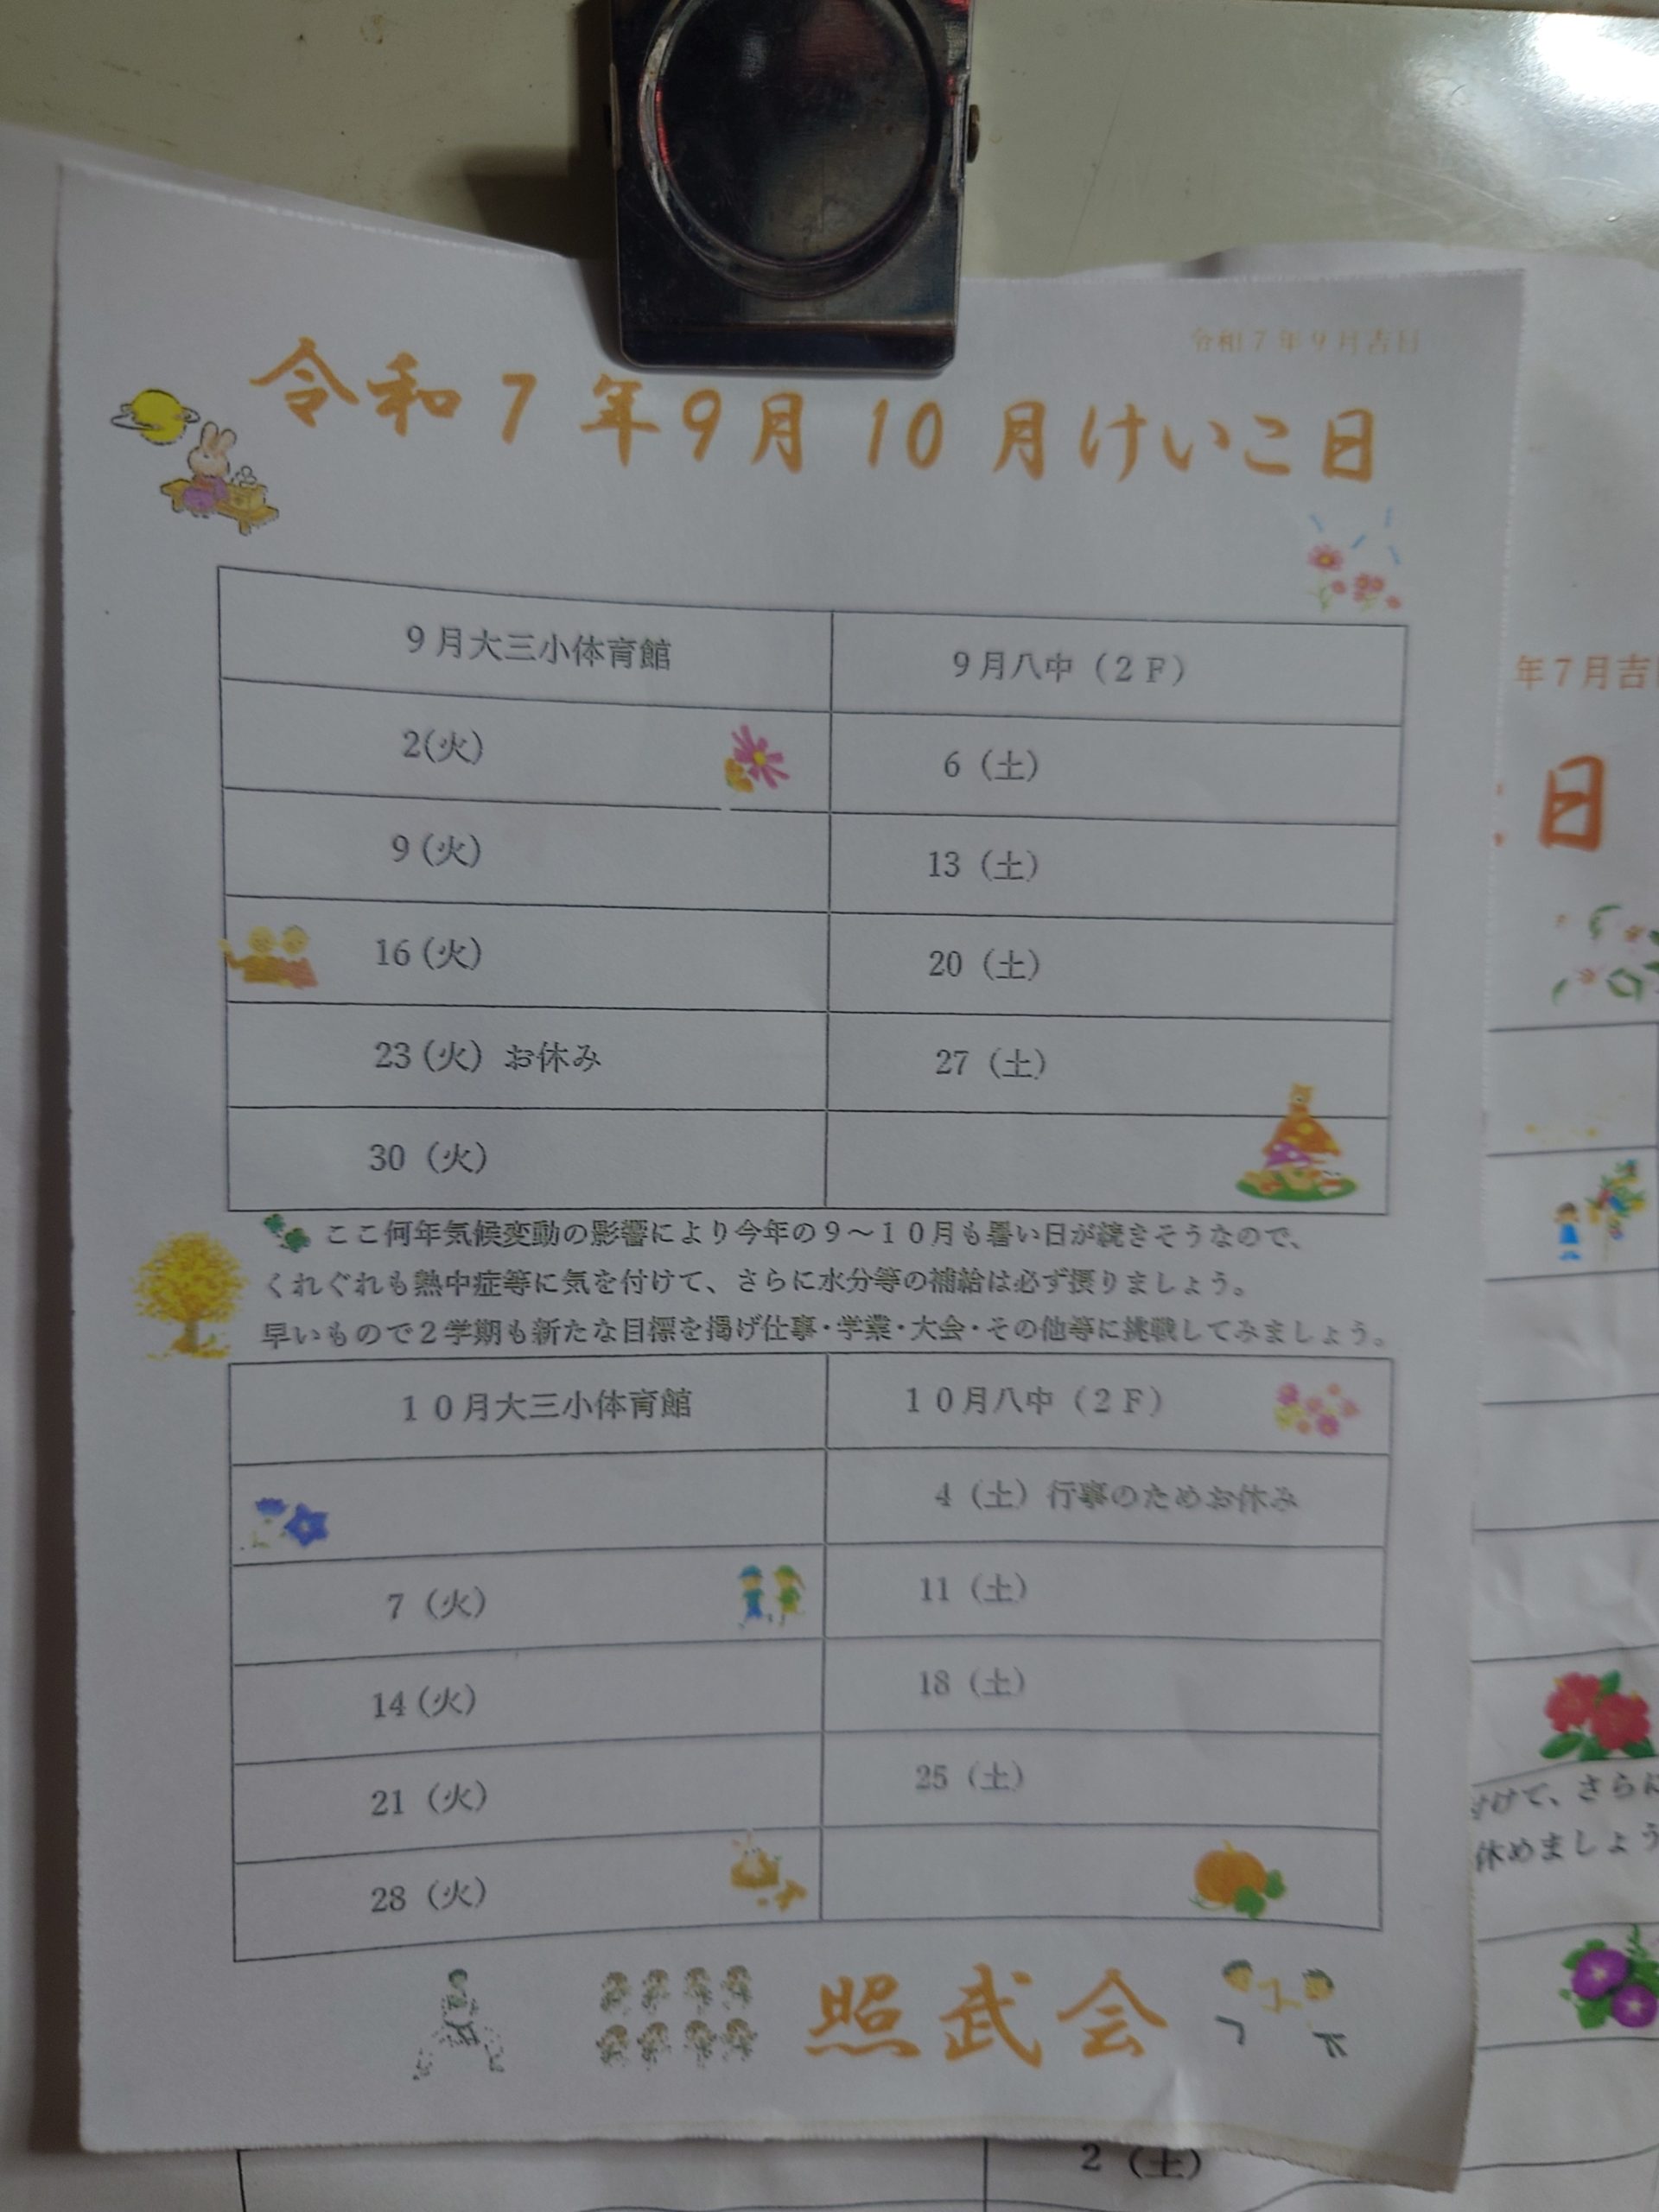 令和７年９月吉日
令和７年９月１０月けいこ日
９月大三小体育館
９月八中（２Ｆ）
2(火)
6（土）
9(火)
13（土）
16(火)
20（土）
23(火) お休み
27（土）
30（火）
ここ何年気候変動の影響により今年の９～１０月も暑い日が続きそうなので、
くれぐれも熱中症等に気を付けて、さらに水分等の補給は必ず摂りましょう。
早いもので２学期も新たな目標を掲げ仕事・学業・大会・その他等に挑戦してみましょう。
１０月大三小体育館
１０月八中（２Ｆ）
4（土）行事のためお休み
7（火）
11（土）
14(火)
18（土）
21（火）
25（土）
28（火）
照武会
年７月吉
日
付けて、さらに
休めましょう
2（土）